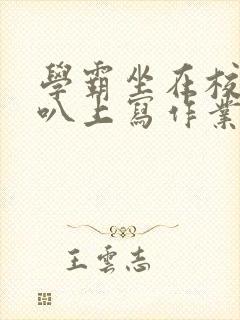 學霸坐在校
叭上寫作業
王雲志